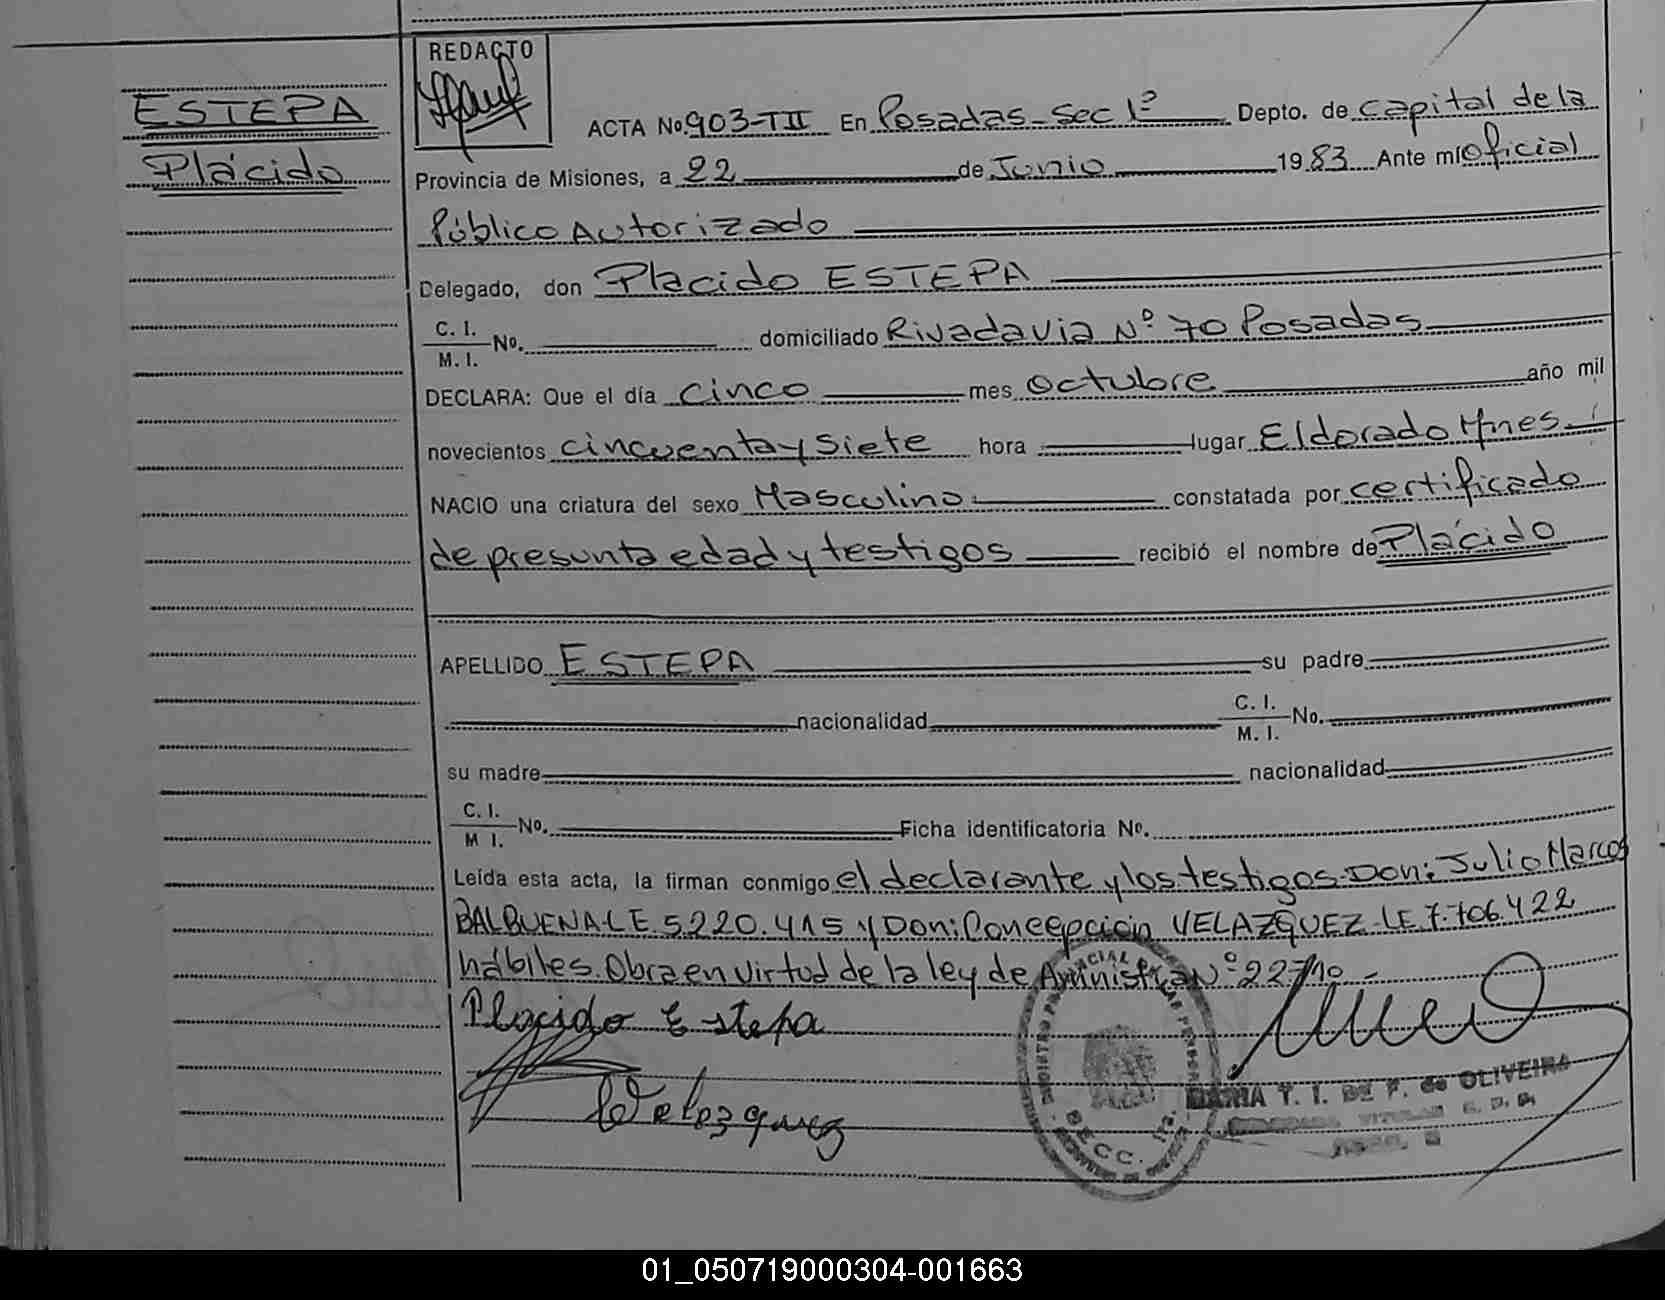 REDACTO
ESTEPA
Plácido
ACTA No. 903-TII En Posadas-Sec 1º Depto. de capital de la
Provincia de Misiones, a 22 de Junio 1983 Ante mí oficial
Público Autorizado
Delegado, don Placido ESTEPA
C. I.
M. I.
No. domiciliado Rivadavia Nº 70 Posadas
DECLARA: Que el día cinco mes octubre año mil
novecientos cincuenta y siete hora lugar Eldorado Mnes.
NACIO una criatura del sexo Masculino constatada por certificado
de presunta edad y testigos recibió el nombre de Plácido
APELLIDO ESTEPA su padre
nacionalidad C. I.
M. I.
No.
su madre nacionalidad
C. I.
M I.
No. Ficha identificatoria No.
Leída esta acta, la firman conmigo el declarante y los testigos Don: Julio Marcos
BALBUENA LE. 5.220.415 y Don: Concepción VELAZQUEZ-LE.7.706.422
hábiles. Obra en virtud de la ley de Aministía Nº 22710.-
Placido Estepa
Velazquez
SECC. 1ra.
MARIA T. I. DE F. de OLIVEIRA
01_050719000304-001663